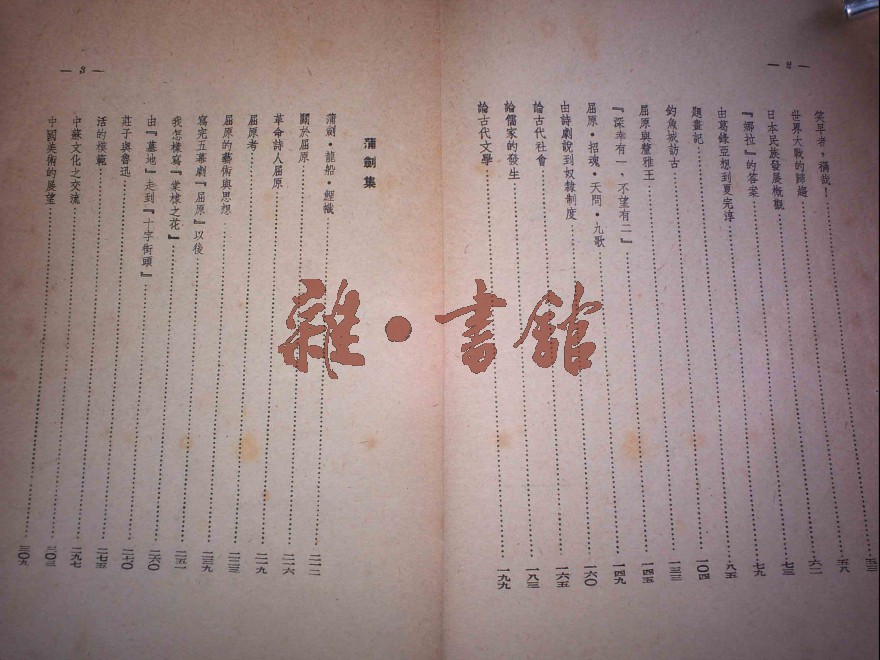 — 2 —
笑早者，禍哉！……五三
世界大戰的歸趨……五八
日本民族發展概觀……六二
『娜拉』的答案……七三
由葛錄亞想到夏完淳……七九
題畫記……八五
釣魚城訪古……一〇四
屈原與釐雅王……一三三
『深幸有一，不望有二』……一四五
屈原・招魂・天問・九歌……一四九
由詩劇說到奴隸制度……一六〇
論古代社會……一六五
論儒家的發生……一八三
論古代文學……一九九
— 3 —
蒲劍集
蒲劍・龍船・鯉幟……二一二
關於屈原……二一六
革命詩人屈原……二一九
屈原考……二二三
屈原的藝術與思想……二三九
寫完五幕劇『屈原』以後……二五一
我怎樣寫『棠棣之花』……二六〇
由『墓地』走到『十字街頭』……二七〇
莊子與魯迅……二七五
活的模範……二九七
中蘇文化之交流……三〇三
中國美術的展望……三〇九
雜・書館